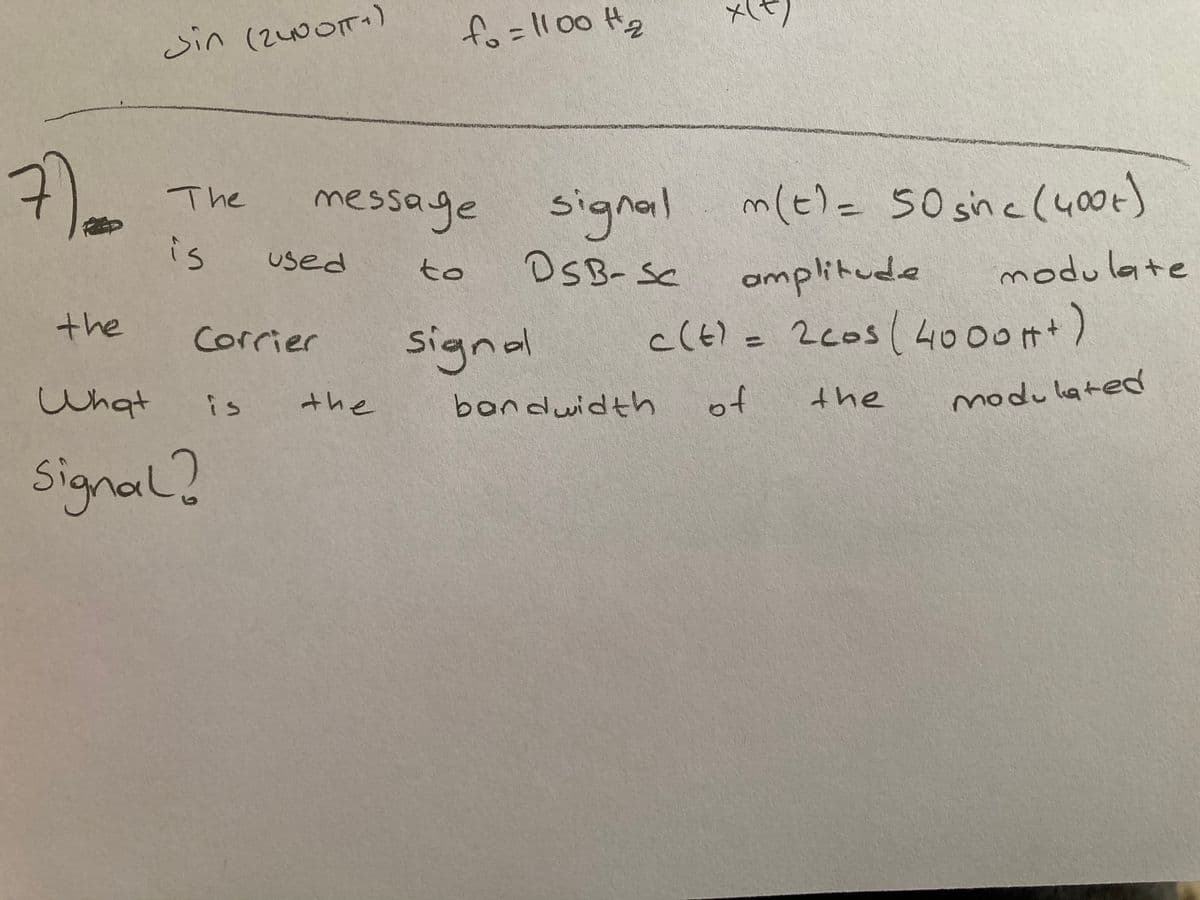 sin (2400πt) f₀ = 1100 Hz x(t)
7). The message signal m(t) = 50 sinc(400t)
is used to DSB-SC amplitude modulate
the carrier signal c(t) = 2cos(4000πt)
What is the bandwidth of the modulated
signal?